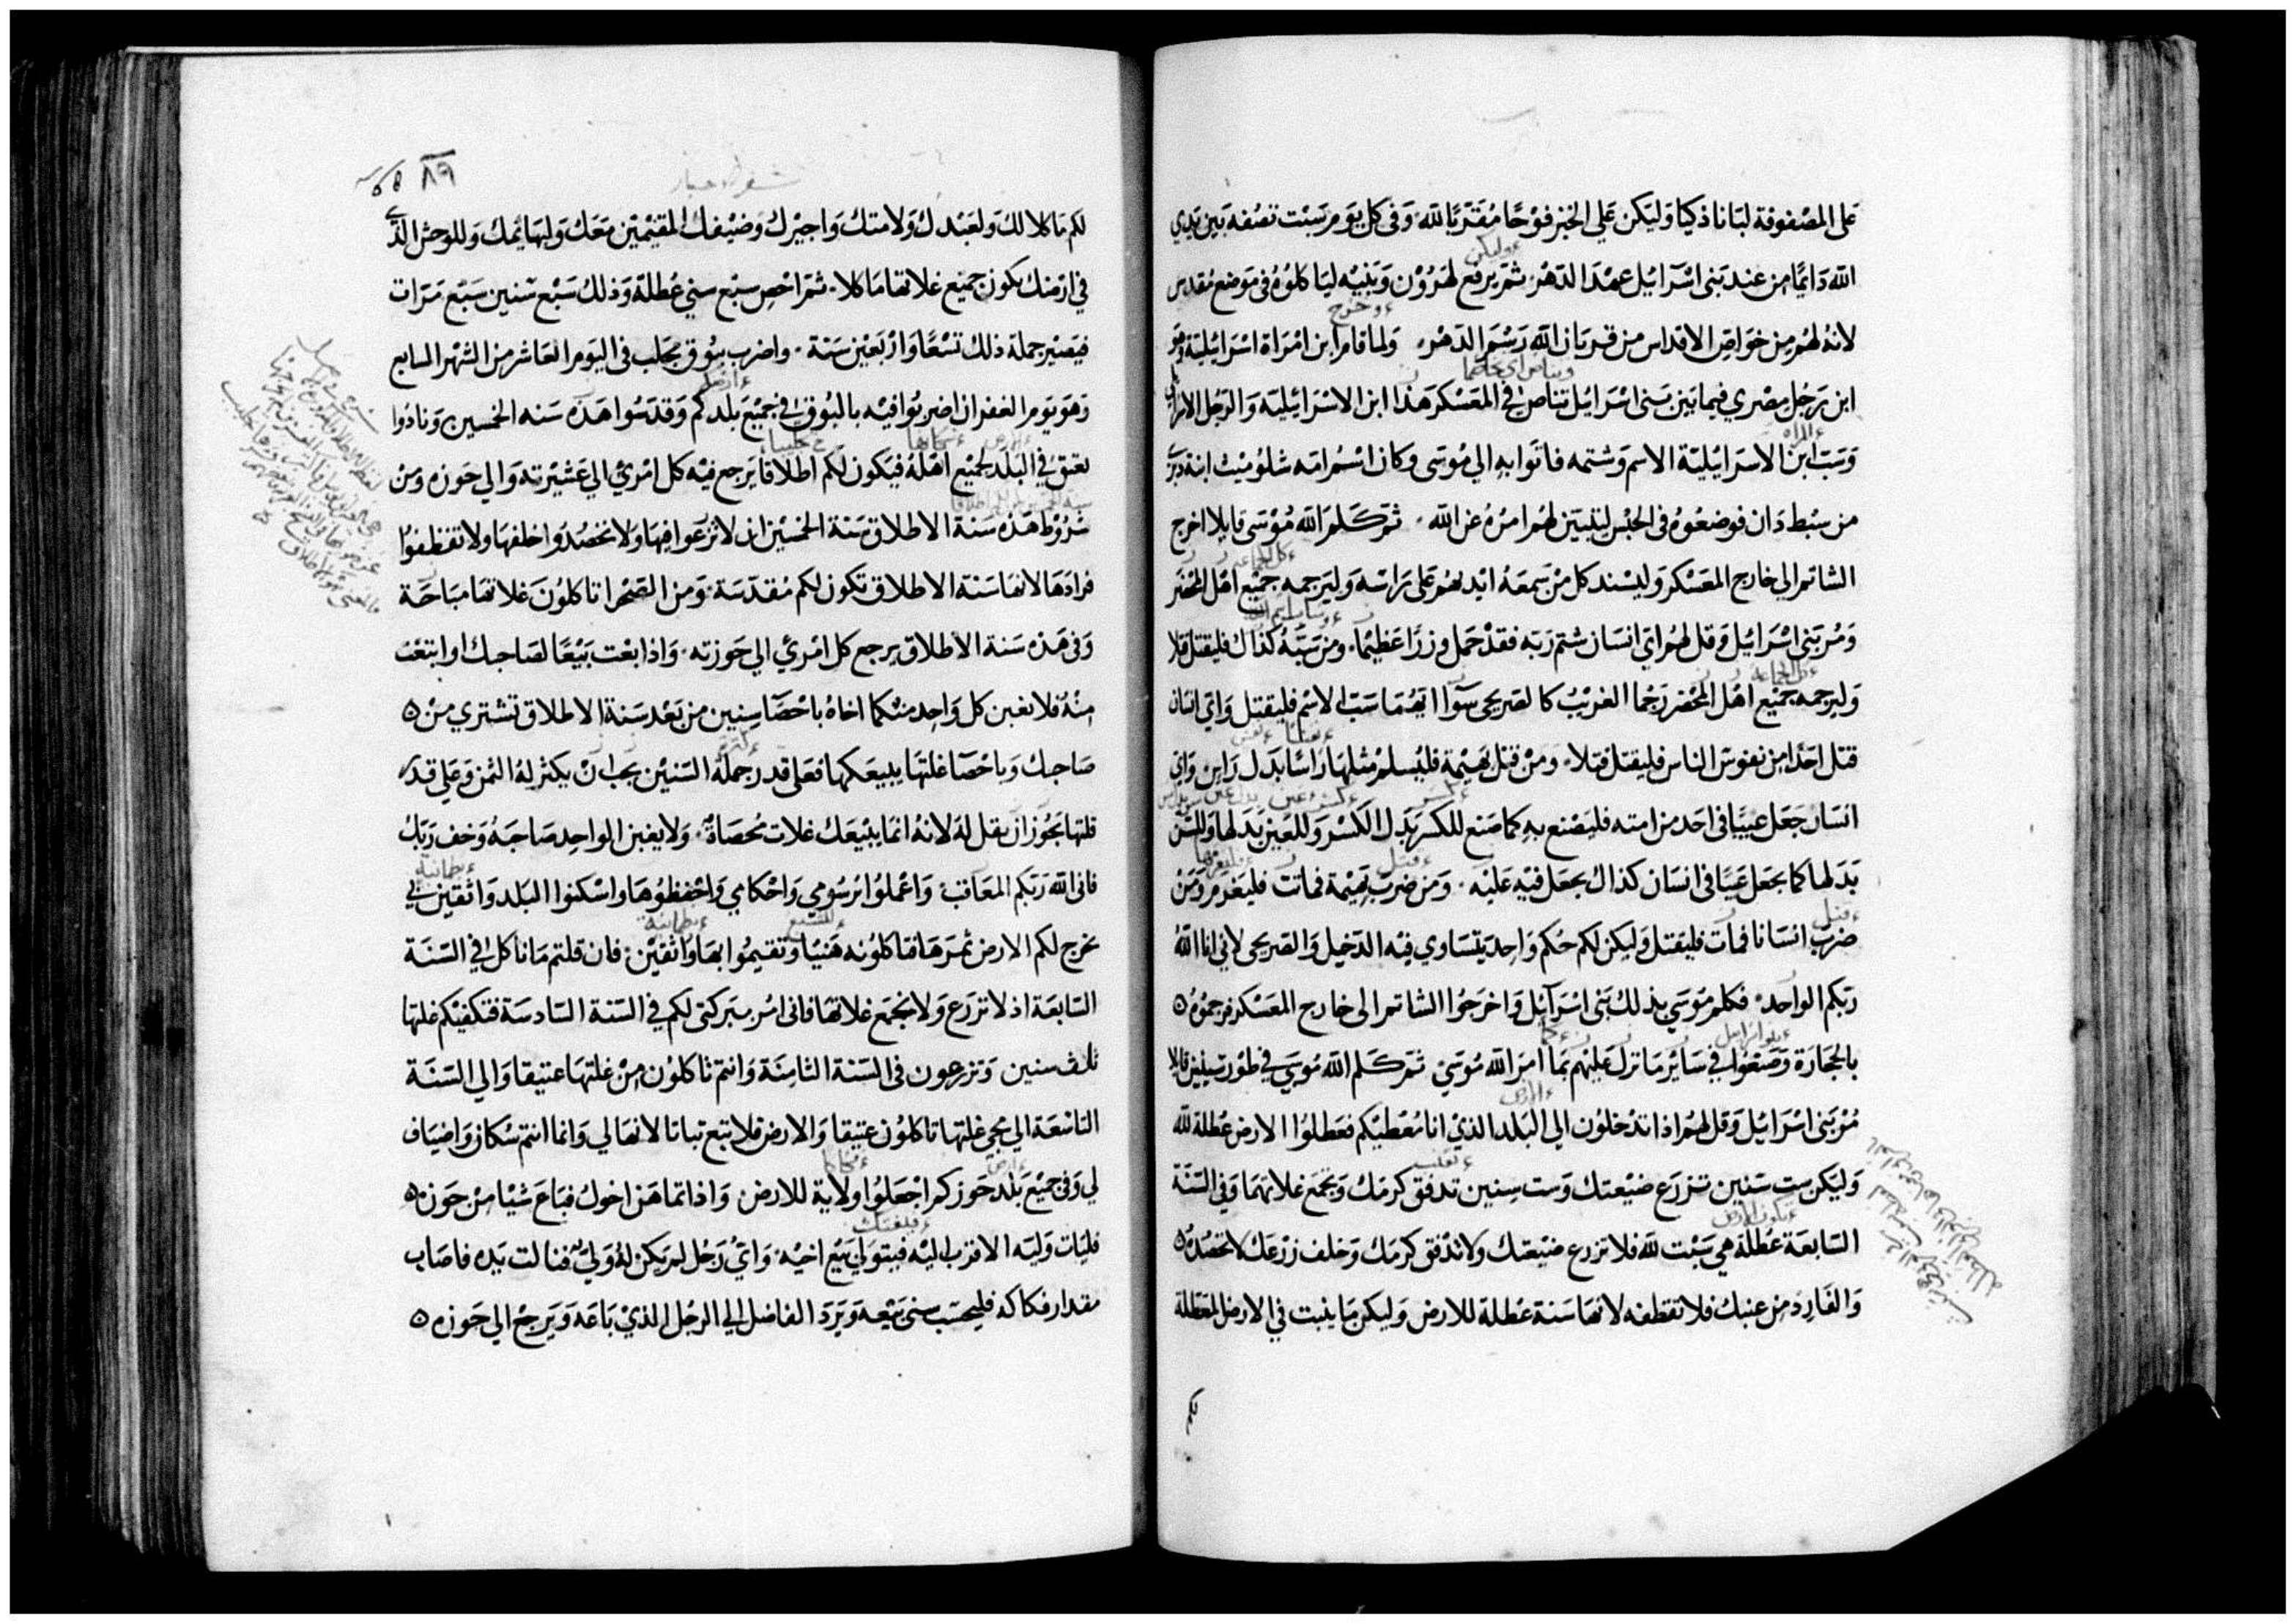 على المصفوفة لبانا ذكيا وليكن على الخبز فوحًا مُقتربًا لله وفى كل يوم سبت تصُفه بين يدي
الله دايمًا من عند بنى اسرايل عهدا لدهر ثم يرفع لهرون وبنيه لياكلوه فى موضع مقدس
لانه لهم من خواص الاقداس من قربان الله رسم الدهر ولما قام ابن امراة اسرائيلية وهو
ابن رجل مصري فيما بين بنى اسرايل تناص فى المعسكر هذا ابن الاسرائيلية والرجل الاسرايلى
وسب ابن الاسرائيلية الاسم وشتمه فاتوا به الى موسى وكان اسم امه شلوميت ابنة دبرى
من سبط دان فوضعوه فى الحبس ليتبين لهم امره عن الله ثم كلم الله موسى قايلا اخرج
الشاتم الى خارج المعسكر وليسند كل من سمعه ايديهم على راسه وليرجمه جميع اهل المحضر
ومر بنى اسرايل وقل لهم اى انسان شتم ربه فقد حمل وزرا عظيما ومن سبّه كذاك فليقتل قتلا
وليرجمه جميع اهل المحضر رجما الغريب كالصريحى سوآ ايهما سب الاسم فليقتل واى انسان
قتل احدا من نفوس الناس فليقتل قتلا ومن قتل بهيمة فليسلم مثلها راسًا بدل راس واى
انسان جعل عيبا فى احد من امته فليصنع به كما صنع للكسر بدل الكسر وللعين بدلها وللسن
بدلها كما يجعل عيبا فى انسان كذاك يجعل فيه عليه ومن ضرب بهيمة فماتت فليغرم ومن
ضرب انسانا فمات فليقتل وليكن لكم حكم واحد يتساوي فيه الدخيل والصريحى لانى انا الله
ربكم الواحد فكلم موسي بذلك بنى اسرآيل واخرجوا الشاتم الى خارج المعسكر فرجموه
بالحجارة وصنعوا فى ساير ما نزل عليهم بما امر الله موسى ثم كلم الله موسي فى طور سينين قايلا
مر بنى اسرايل وقل لهم اذا تدخلون الى البلد الذي انا معطيكم فعطلوا الارض عطلة لله
وليكن ست سنين تزرع ضيعتك وست سنين تدفق كرمك وتجمع غلاتهما وفى السنة
السابعة عطلة هى سبت لله فلا تزرع ضيعتك ولا تدفق كرمك وخلف زرعك لا تحصده
والفارد من عنبك فلا تقطفه لانها سنة عطلة للارض وليكن ما ينبت فى الارض المعطلة
لكم
٨٩
لكم ماكلا لك ولعبدك ولامتك واجيرك وضيفك المقيمين معك ولبهائمك وللوحش الذي
فى ارضك يكون جميع غلاتها ماكلا ثم احص سبع سني عطلة وذلك سبع سنين سبع مرات
فيصير جملة ذلك تسعًا واربعين سنة واضرب ببوق مجلب فى اليوم العاشر من الشهر السابع
وهو يوم الغفران اضربوا فيه بالبوق فى جميع بلدكم وقدسوا هذه سنه الخمسين ونادُوا
بعتق فى البلد لجميع اهله فيكون لكم اطلاقا يرجع فيه كل امرئ الى عشيرته والى حوزه ومن
شروط هذه سنة الاطلاق سنة الخمسين ان لا تزرعوا فيها ولا تحصدوا خلفها ولا تقطفوا
فرادها لانها سنة الاطلاق تكون لكم مقدسة ومن الصحرا تاكلون غلاتها مباحة
وفى هذه سنة الاطلاق يرجع كل امرئ الى حوزته واذا بعت بيعًا لصاحبك او ابتعت
منه فلا يغبن كل واحد منكما اخاه باحصآ سنين من بعد سنة الاطلاق تشتري من
صاحبك وباحصآ غلتها يبيعكها فعلى قدر جملة السنين يجب ان يكثر له الثمن وعلى قدر
قلتها يجوز ان يقل له لانه انما يبيعك غلات محصاة ولا يغبن الواحد صاحبه وخف ربك
فانى الله ربكم المعاقب واعملوا برسومي واحكامي واحفظوها واسكنوا البلد واثقين فى
تخرج لكم الارض ثمرها تاكلونه هنيا وتقيموا بها واثقين فان قلتم ما ناكل فى السنة
السابعة اذ لا نزرع ولا نجمع غلاتها فانى امر ببركتى لكم فى السنة السادسة فتكفيكم غلتها
ثلث سنين وتزرعون فى السنة الثامنة وانتم تاكلون من غلتها عتيقا والى السنة
التاسعة الى مجى غلتها تاكلون عتيقا والارض فلا تبع بتاتا لانها لي وانما انتم سكان واضياف
لي وفى جميع بلد حوزكم اجعلوا ولاية للارض واذا تماهن اخوك فباع شيا من حوزه
فليات وليه الاقرب اليه فيتولى بيع اخيه واى رجل لم يكن له ولى فنالت يده فاصاب
مقدار فكاكه فليحسب سنى بيعه ويرد الفاضل الى الرجل الذي باعه ويرجع الى حوزه